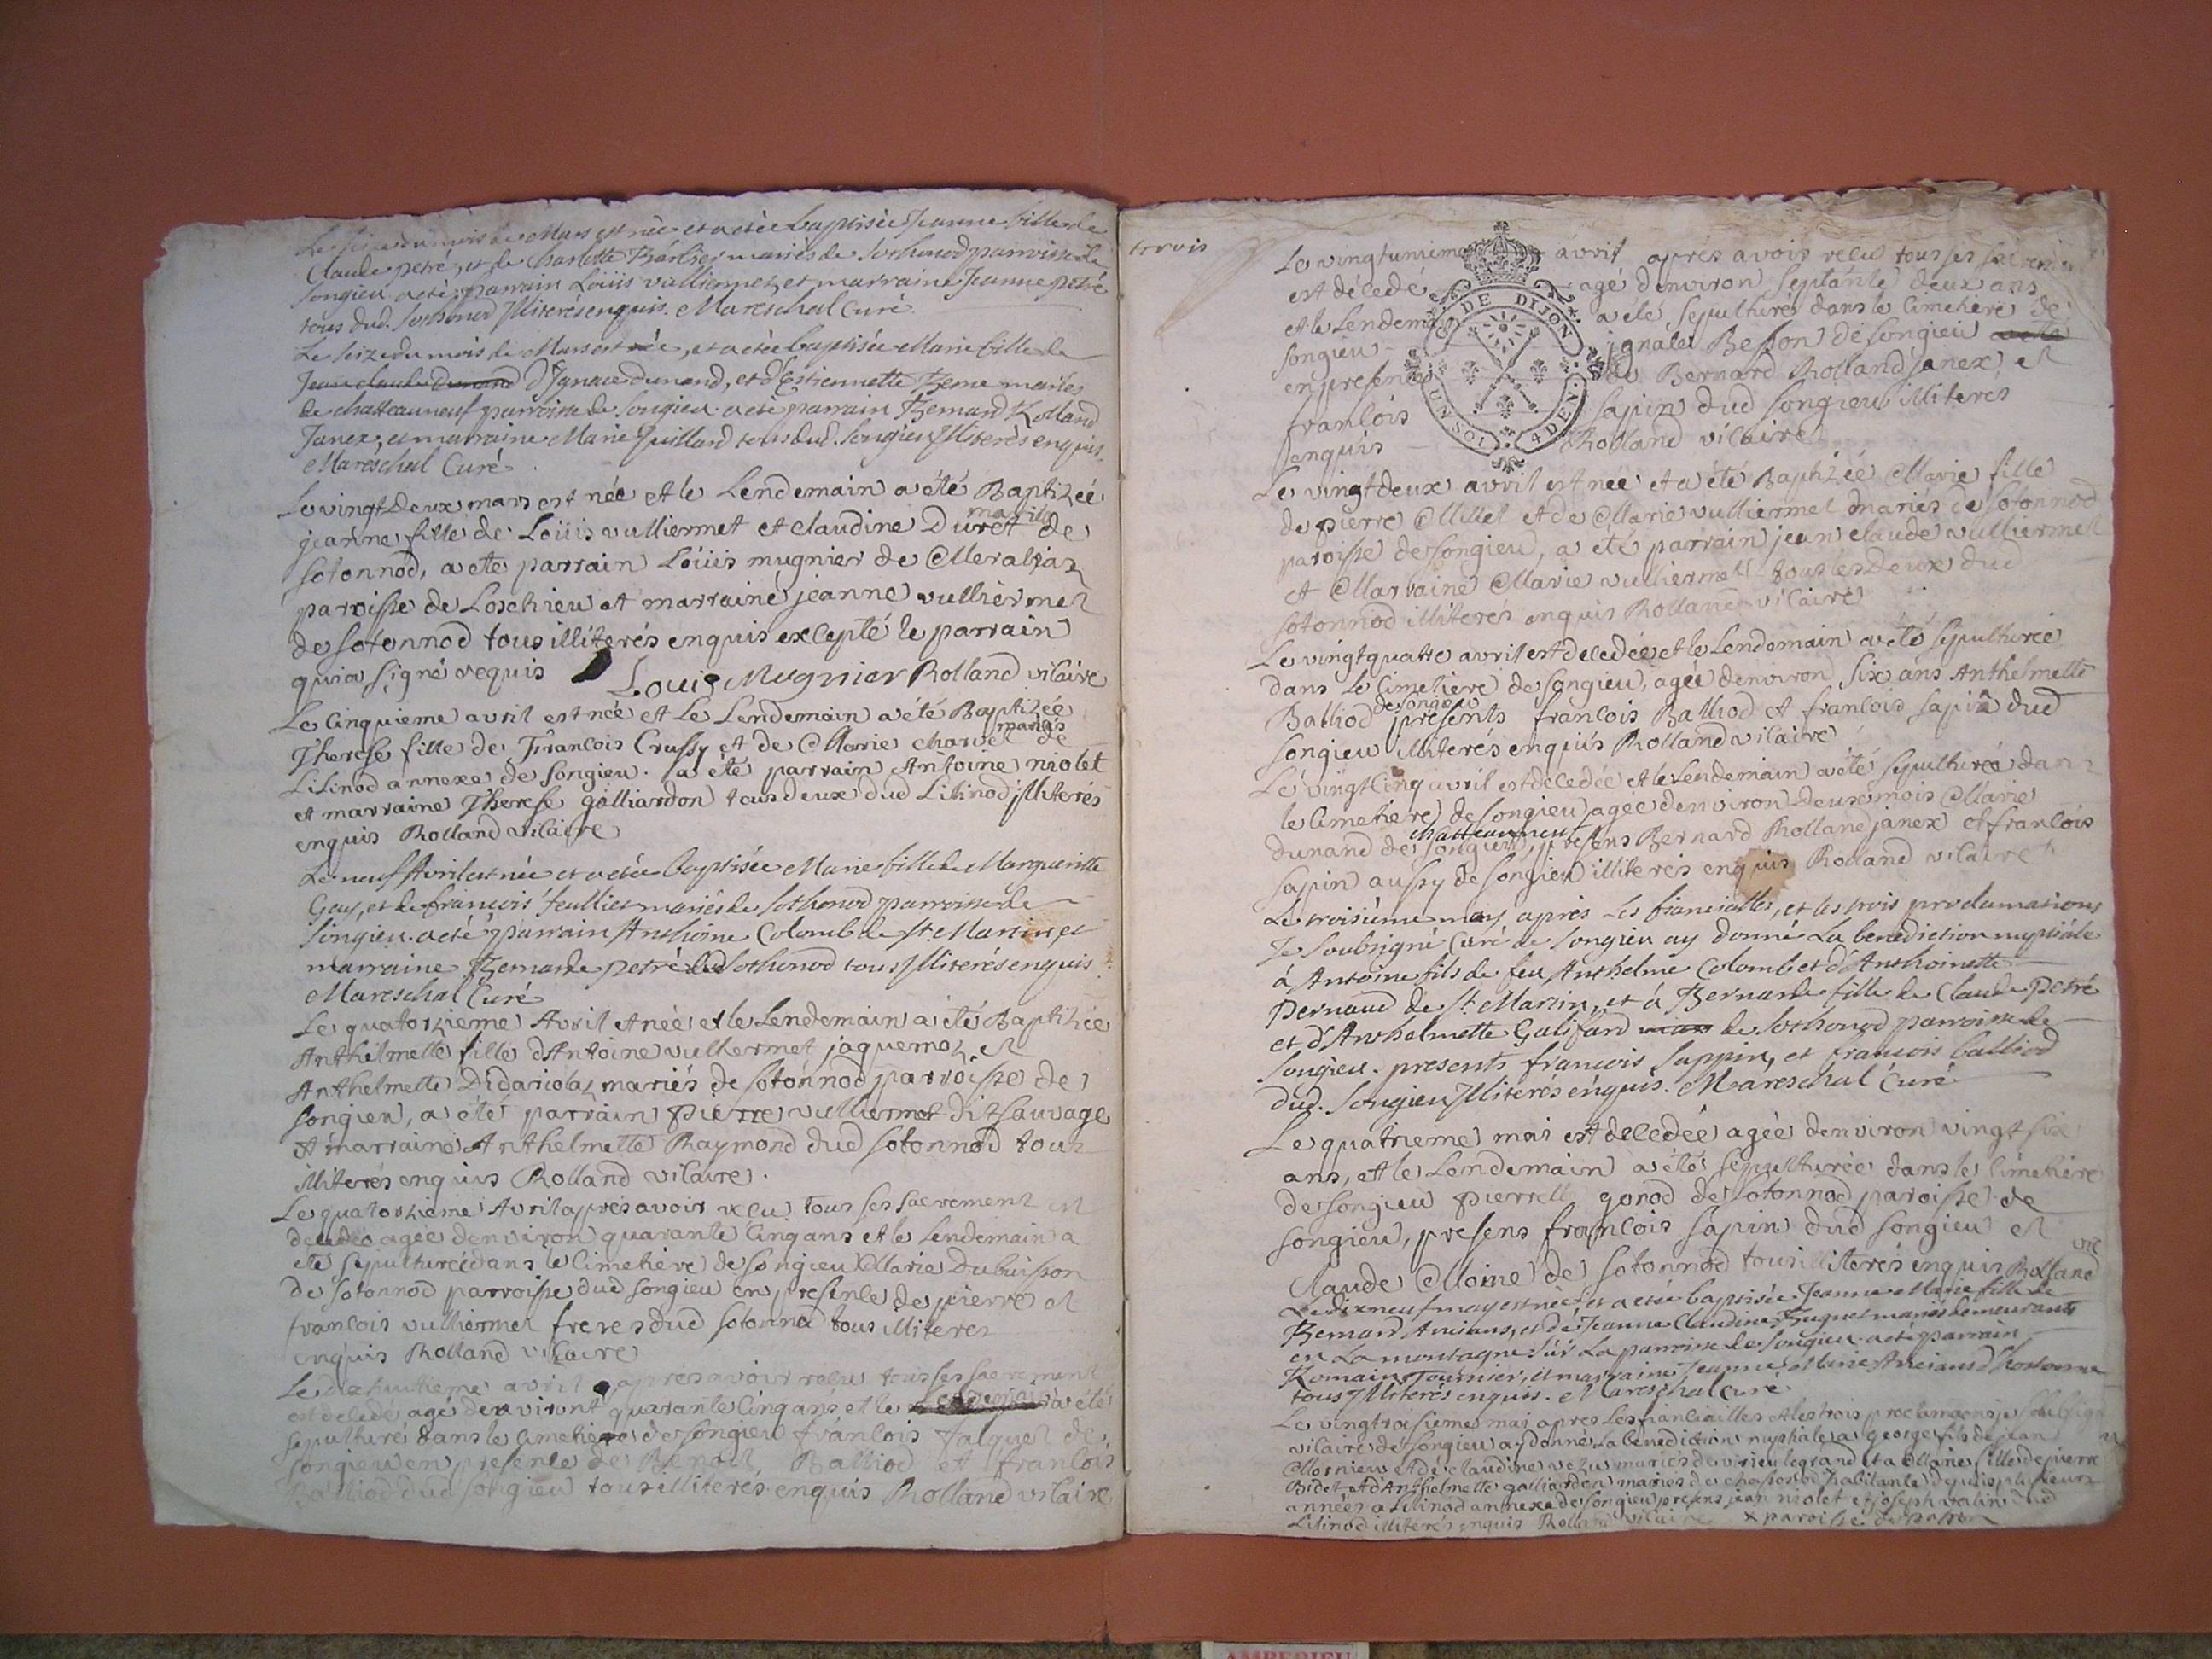 Le seize du mois de Mars est née et a étée baptisée Jeanne fille de
Claude petré, et de Charlotte Barbier mariés de Sothonod parroisse de
Songieu. a été parrain Loüis vulliermet, et marraine Jeanne petré
tous dud. Sothonod Illiterés enquis. Mareschal Curé
Le seize du mois de Mars est née, et a étée baptisée Marie fille de
Jean claude dunand d'Ignace dunand, et d'Estiennette Beme mariés
de chatteauneuf parroisse de Songieu. a été parrain Bernard Rolland
Janex, et marraine Marie Juillard tous dud. Songieu Illiterés enquis.
Maréschal Curé
Le vingt Deux mars est née et le Lendemain a été Baptizée
mariés
jeanne fille de Loüis vulliermet et claudine Duret de
sotonnod, a eté parrain Loüis mugnier de Meraleaz
paroisse de Lochieu et marraine jeanne vulliermet
de sotonnod tous illiterés enquis excepté le parrain
qui a signé requis Louis Mugnier Rolland vicaire
Le Cinquieme avril est née et Le Lendemain a été Baptizée
mariés
Therese fille de François Crussy et de Marie charvet de
Lilinod annexe de Songieu. a été parrain Antoine niolet
et marraine Therese galliardon tous deux dud Lilinod illiterés
enquis Rolland vicaire
Le neuf Avril est née et a étée baptisée Marie fille de Marguerite
Gay, et de françois feullier mariés de Sothonod parroisse de
Songieu. a été parrain Anthoine Colomb de St. Martin, et
marraine Bernarde petré dud Sothonod tous Illiterés enquis
Mareschal Curé
Le quatorzieme Avril et née et le Lendemain a été Baptizée
Anthelmette fille d'Antoine vulliermet jaquemoz et
Anthelmette Didaricolaz mariés de sotonnod parroisse de
songieu, a été parrain pierre vulliermet dit sauvage
et marraine Anthelmette Raymond dud sotonnod tous
illiterés enquis Rolland vicaire.
Le quatorzieme Avril apres avoir reçu tous ses sacrement est
decedée agée denviron quarante cinq ans et le Lendemain a
eté sepulturée dans le Cimetiere de Songieu Marie Dubuisson
de sotonnod parroisse dud songieu en presence de pierre et
francois vulliermet freres dud sotonnod tous illiteres
enquis Rolland vicaire
Le dixhuitieme avril apres avoir reçu tous ses sacrement
est decedé agé denviront quarante Cinq ans et le Lendemain a été
sepulturé dans le Cimetiere de Songieu françois falquet de
songieu en presence de Benoit Balliod et françois
Balliod dud songieu tous illiterés enquis Rolland vicaire
trois
Le vingtunieme avril après avoir reçu tous ses sacremens
est décedé agé denviron septante deux ans
et le Lendemain a été sepulturé dans le Cimetiere de
songieu ignace Besson de songieu
en presence de Bernard Rolland janex et
françois sapin dud songieu illiteres
enquis Rolland vicaire
G. DE DIJON
UN SOL 4 DEN.
Le vingt deux avril est née et a été Baptizée Marie fille
de pierre Millet et de Marie vulliermet mariés de sotonnod
paroisse de songieu, a eté parrain jean claude vulliermet
et Marraine Marie vulliermet tous les Deux dud
sotonnod illiteres enquis Rolland vicaire
Le vingt quatre avril est decedée et le Lendemain a été sepulturée
dans Le Cimetiere de songieu, agée denviron six ans Anthelmette
de songieu
Balliod presents francois Balliod et francois sapin dud
songieu illiterés enquis Rolland vicaire
Le vingt Cinq avril est decedée et le Lendemain a été sepulturée dans
le Cimetiere de songieu agée denviron Deux mois Marie
chatteauneuf
dunand de songieu, presens Bernard Rolland janex et francois
sapin aussy de songieu illiterés enquis Rolland vicaire
Le troisième may après les fiancialles, et les trois proclamations
Je soubsigné Curé de Songieu ay donné La benediction nuptiale
à Antoine fils de feu Anthelme Colomb et d'Anthoinette
Pernaud de St. Martin, et à Bernarde fille de Claude petré
et d'Anthelmette Galifard de Sothonod parroisse de
Songieu. presents françois Sappin, et francois balliod
dud. Songieu Illiterés enquis. Mareschal Curé
Le quatrieme mai est decedée agée denviron vingt six
ans, et le Lendemain a été sepulturée dans le Cimetiere
de songieu pierrette gonod de sotonnod paroisse de
songieu, presens françois sapin dud songieu et
Claude Moine de sotonnod tous illiterés enquis Rolland vic
Le dixneuf may est née et a étée baptisée Jeanne Marie fille de
Bernard Anciaus, et de Jeanne Claudine Huguet mariés demeurants
en La montagne sur La parroisse de Songieu. a été parrain
Romain Tournier, et marraine Jeanne Marie Anciaus d'hostonne
tous Illiterés enquis. Mareschal Curé
Le vingtroisieme mai apres Les fianciailles et les trois proclamaons je soussigné
vicaire de songieu ay donné La benediction nuptiale a george fils de jean
Mornieu et de claudine vezu mariés de virieu le grand et a Marie fille de pierre
Bidet et d'Anthelmette galliardon mariés de chassonod habitante depuis plusieurs
années a Lilinod annexe de songieu presens jean niolet et joseph valin dud
Lilinod illiterés enquis Rolland vicaire x paroisse de